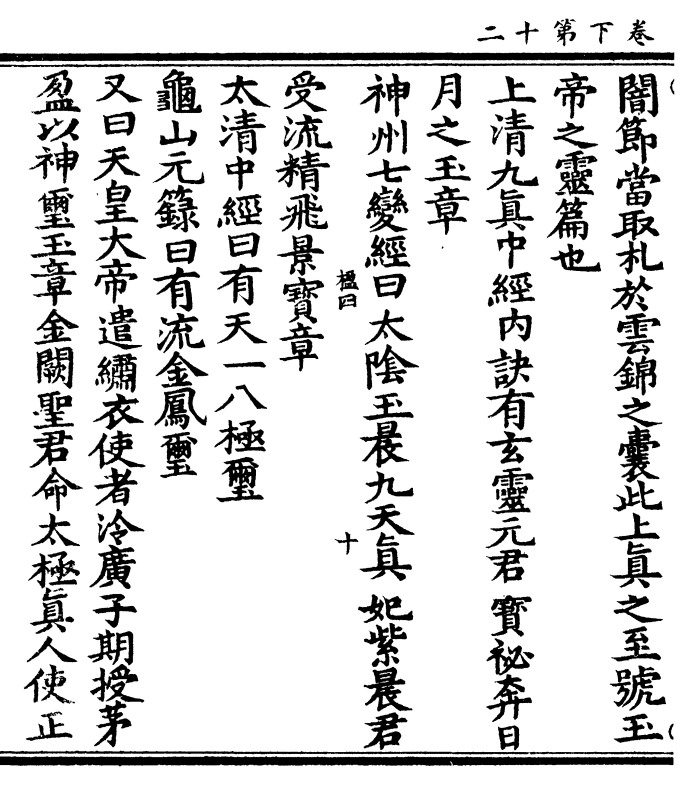 卷下第十二
闇節當取札於雲錦之囊此上真之至號玉
帝之靈篇也
上清九真中經內訣有玄靈元君寶祕奔日
月之玉章
神州七變經曰太陰玉晨九天真妃紫晨君
楹曰
十
受流精飛景寶章
太清中經曰有天一八極璽
龜山元籙曰有流金鳳璽
又曰天皇大帝遣繡衣使者泠廣子期授茅
盈以神璽玉章金闕聖君命太極真人使正